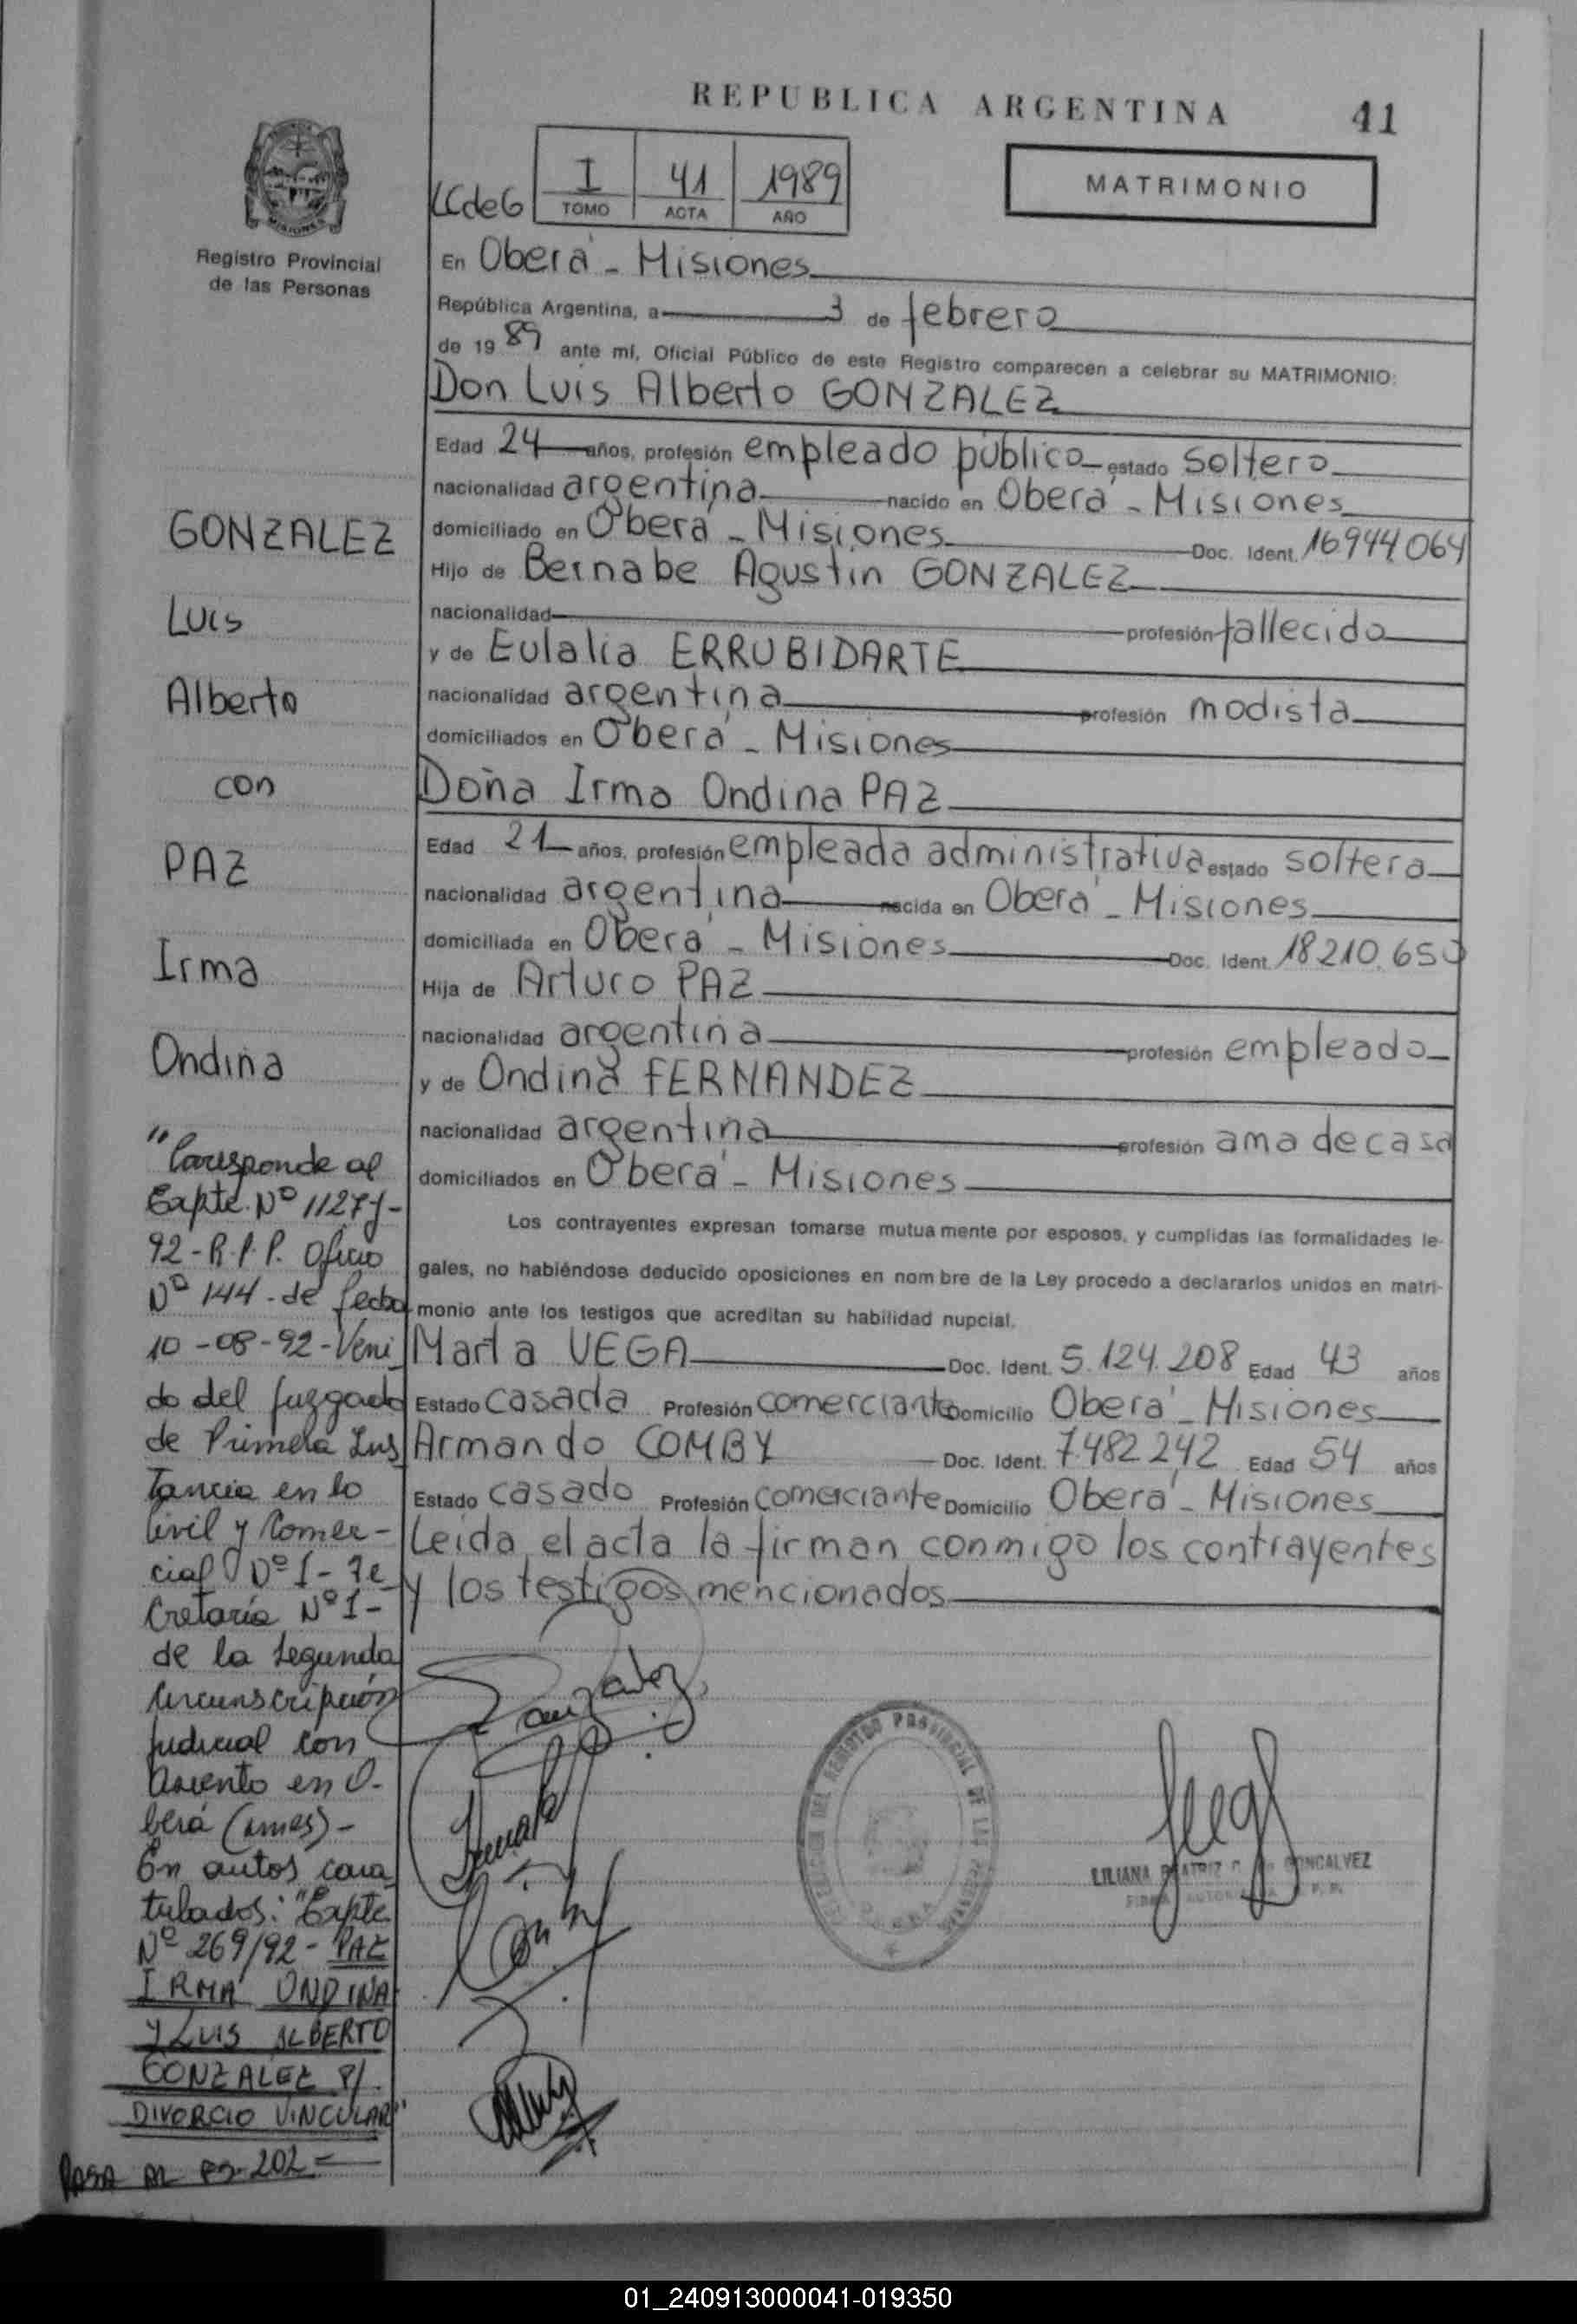 REPUBLICA ARGENTINA
41
I
TOMO
41
ACTA
1989
AÑO
MATRIMONIO
LCdeG
Registro Provincial
de las Personas
En Oberá - Misiones
República Argentina, a 3 de febrero
de 1989 ante mí, Oficial Público de este Registro comparecen a celebrar su MATRIMONIO:
Don Luis Alberto GONZALEZ
Edad 24 años, profesión empleado público estado soltero
nacionalidad argentina nacido en Oberá - Misiones
domiciliado en Oberá - Misiones Doc. Ident. 16944064
Hijo de Bernabe Agustin GONZALEZ
nacionalidad profesión fallecido
y de Eulalia ERRUBIDARTE
nacionalidad argentina profesión modista
domiciliados en Oberá - Misiones
Doña Irma Ondina PAZ
Edad 21 años, profesión empleada administrativa estado soltera
nacionalidad argentina nacida en Oberá - Misiones
domiciliada en Oberá - Misiones Doc. Ident. 18210.650
Hija de Arturo PAZ
nacionalidad argentina profesión empleado
y de Ondina FERNANDEZ
nacionalidad argentina profesión ama de casa
domiciliados en Oberá - Misiones
Los contrayentes expresan tomarse mutuamente por esposos, y cumplidas las formalidades le-
gales, no habiéndose deducido oposiciones en nombre de la Ley procedo a declararlos unidos en matri-
monio ante los testigos que acreditan su habilidad nupcial.
Marta VEGA Doc. Ident. 5.124.208 Edad 43 años
Estado casada Profesión comerciante Domicilio Oberá - Misiones
Armando COMBY Doc. Ident. 7.482242 Edad 54 años
Estado casado Profesión comerciante Domicilio Oberá - Misiones
Leída el acta la firman conmigo los contrayentes
y los testigos mencionados
GONZALEZ
Luis
Alberto
con
PAZ
Irma
Ondina
"Corresponde al
Expte. Nº 11271-
92-R.P.P. Oficio
Nº 144-de fecha
10-08-92-Veni
do del Juzgado
de Primera Ins
tancia en lo
Civil y Comer-
cial Nº I-Se
cretaría Nº I-
de la Segunda
Circunscripción
Judicial con
asiento en O-
berá (Mnes)-
En autos cara
tulados: "Expte
Nº 269/92- PAZ
IRMA ONDINA
Y LUIS ALBERTO
GONZALEZ P/.
DIVORCIO VINCULAR"
PASA AL FS-202=
Gonzalez
REGISTRO PROVINCIAL DE LAS PERSONAS
LILIANA BEATRIZ GONCALVEZ
01_240913000041-019350